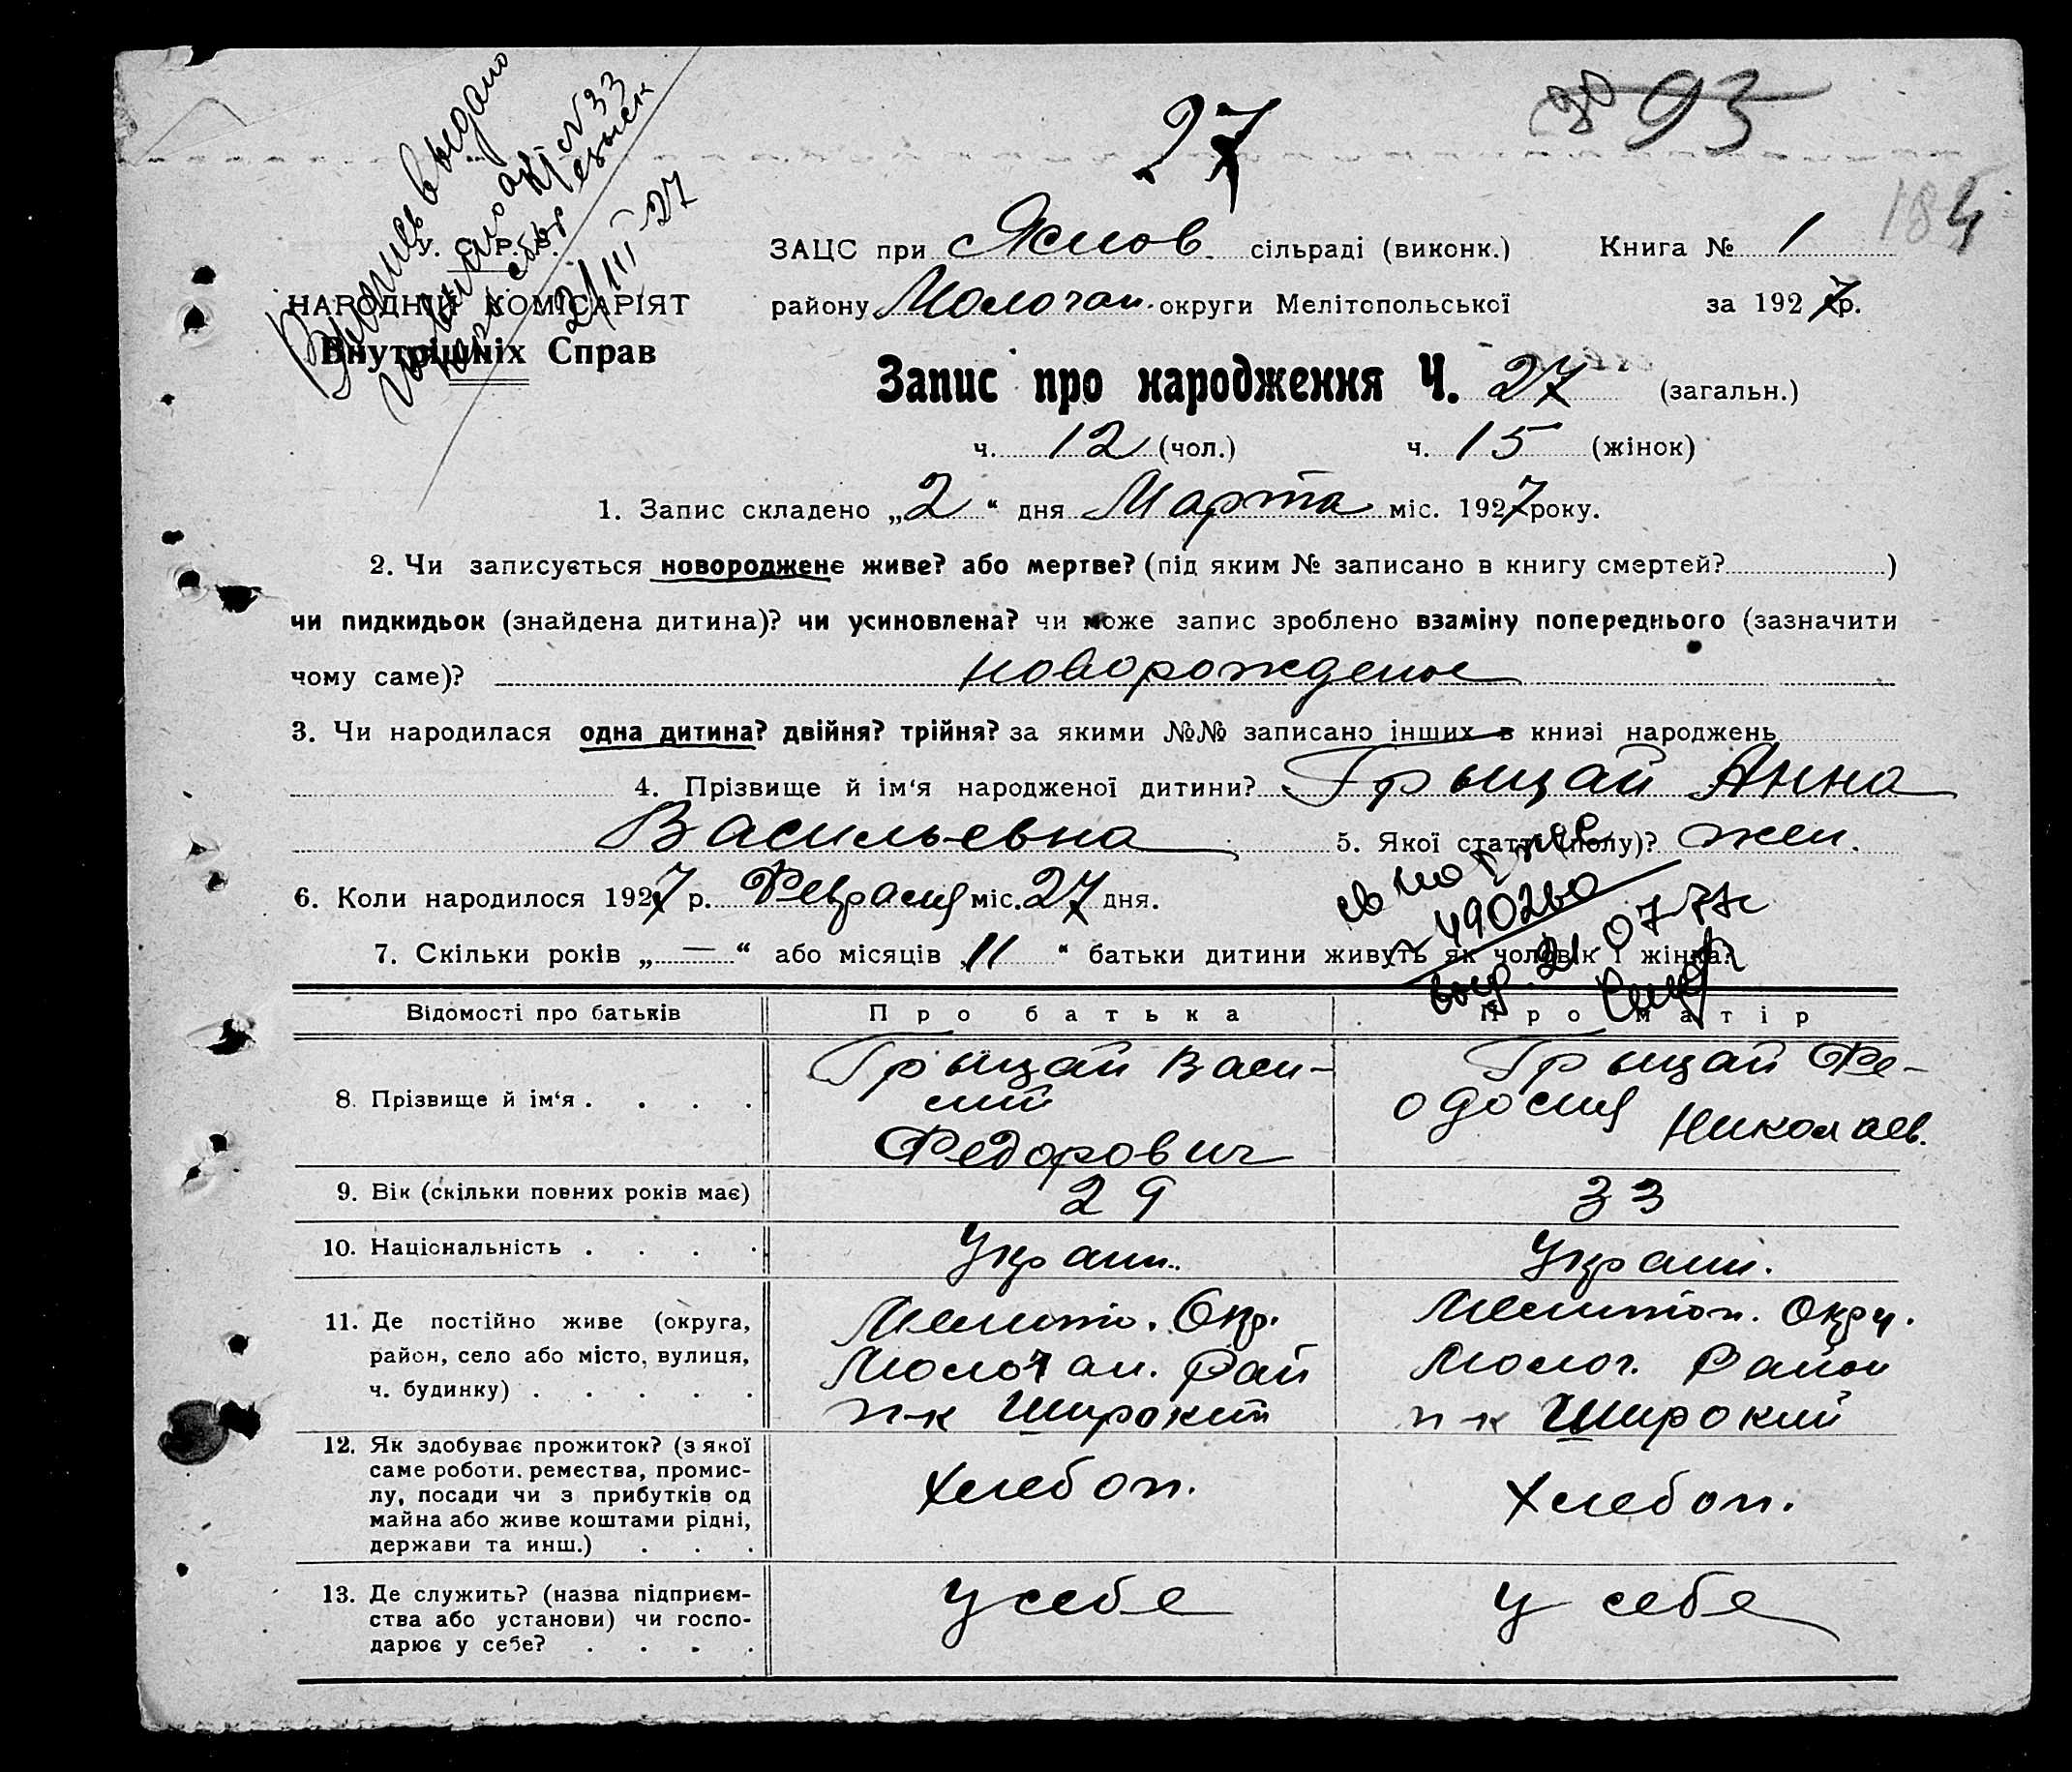 Выпись выдана
27
93
184
У. С. Р. Р.
НАРОДНІЙ КОМІСАРІЯТ
Внутрішніх Справ
21/III-27
ЗАЦС при Яснов. сільраді (виконк.) Книга № 1
району Молочан. округи Мелітопольської за 1927 р.
Запис про народження Ч. 27 (загальн.)
ч. 12 (чол.) ч. 15 (жінок)
1. Запис складено „2“ дня Марта міс. 1927 року.
2. Чи записується новороджене живе? або мертве? (під яким № записано в книгу смертей? )
чи пидкидьок (знайдена дитина)? чи усиновлена? чи може запис зроблено взаміну попереднього (зазначити
чому саме)? новорожденое
3. Чи народилася одна дитина? двійня? трійня? за якими №№ записано інших в книзі народжень
4. Прізвище й ім‘я народженої дитини? Грыцай Анна
Васильевна 5. Якої статти (полу)? жен.
6. Коли народилося 1927 р. Февраля міс. 27 дня.
7. Скільки років „—“ або місяців „11“ батьки дитини живуть як чоловік і жінка?
Відомості про батьків Про батька Про матір
8. Прізвище й ім‘я . . . . Грыцай Васи-
лий
Федорович
Грыцай Фе-
одосия Николаев.
9. Вік (скільки повних років має) 29 33
10. Національність . . . . Украин. Украин.
11. Де постійно живе (округа,
район, село або місто, вулиця,
ч. будинку) . . . . .
Мелитоп. Окр.
Молочан. Рай
п-к Широкий
Мелитоп. Окру.
Молоч. Район
п-к Широкий
12. Як здобуває прожиток? (з якої
саме роботи, ремества, промис-
лу, посади чи з прибутків од
майна або живе коштами рідні,
держави та инш.) . . .
Хлебоп.
Хлебоп.
13. Де служить? (назва підприєм-
ства або установи) чи госпо-
дарює у себе? . . . .
у себе
у себе